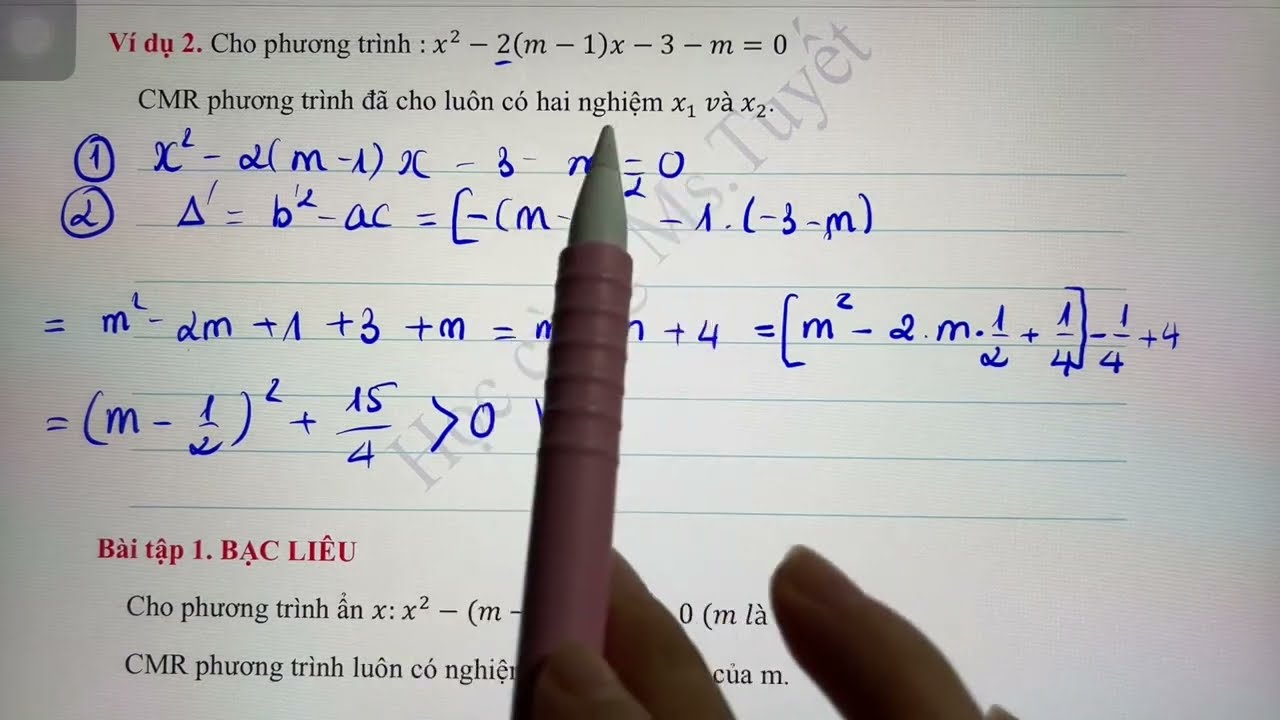 Ví dụ 2. Cho phương trình : x² − 2(m − 1)x − 3 − m = 0
CMR phương trình đã cho luôn có hai nghiệm x₁ và x₂.
① x² - 2(m -1) x - 3 - m = 0
② Δ' = b'² - ac = [-(m - ² - 1.(-3-m)
= m² - 2m + 1 + 3 + m = m + 4 = [m² - 2.m.1/2 + 1/4] - 1/4 + 4
= (m - 1/2)² + 15/4 > 0
Học cùng Ms.Tuyết
Bài tập 1. BẠC LIÊU
Cho phương trình ẩn x: x² − (m 0 (m là
CMR phương trình luôn có của m.